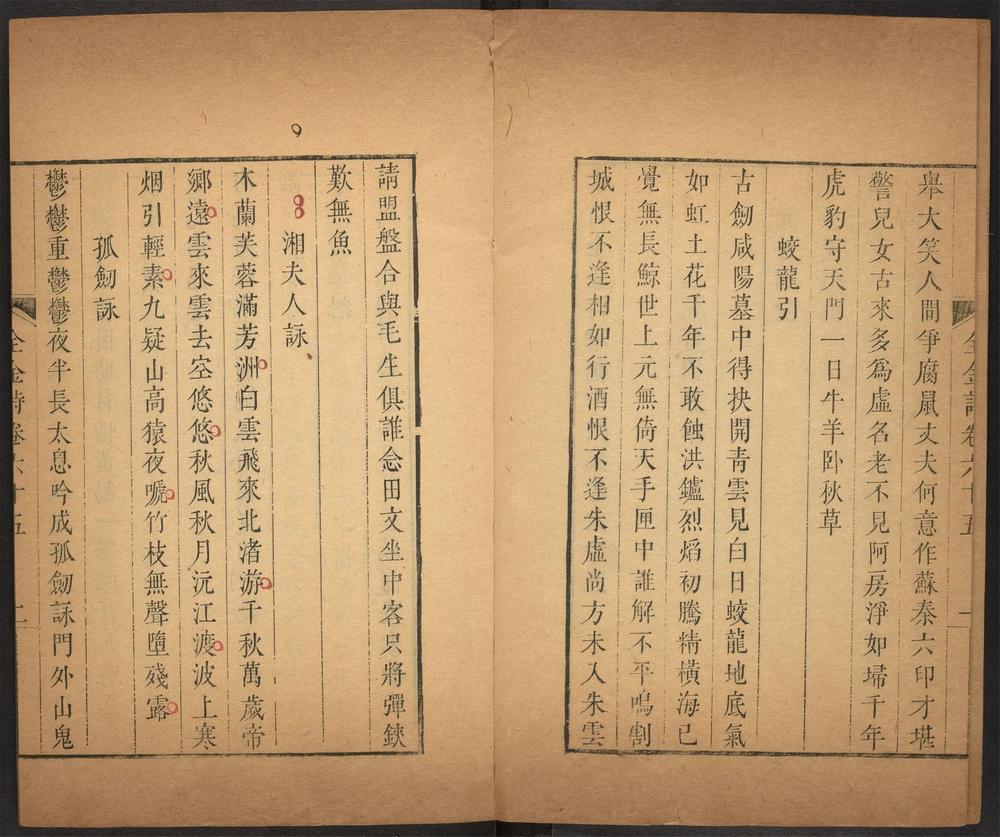 舉大笑人間爭腐鼠丈夫何意作蘇秦六印才堪
警兒女古來多爲虛名老不見阿房淨如埽千年
虎豹守天門一日牛羊卧秋草
蛟龍引
古劒咸陽墓中得抉開青雲見白日蛟龍地底氣
如虹土花千年不敢蝕洪鑪烈焰初騰精橫海已
覺無長鯨世上元無倚天手匣中誰解不平鳴割
城恨不逢相如行酒恨不逢朱虛尚方未入朱雲
請盟盤合與毛生俱誰念田文坐中客只將彈鋏
歎無魚
湘夫人詠
木蘭芙蓉滿芳洲白雲飛來北渚游千秋萬歲帝
鄉遠雲來雲去空悠悠秋風秋月沅江渡波上寒
烟引輕素九疑山高猿夜嗁竹枝無聲墮殘露
孤劒詠
鬱鬱重鬱鬱夜半長太息吟成孤劒詠門外山鬼
全金詩卷六十五